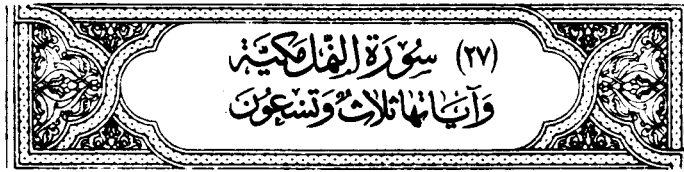 (٢٧) سُوۡرَةُ النَّمۡل مَكيَّة
وَآيَاتهَا ثلَاثٌ وَتِسۡعُونَ